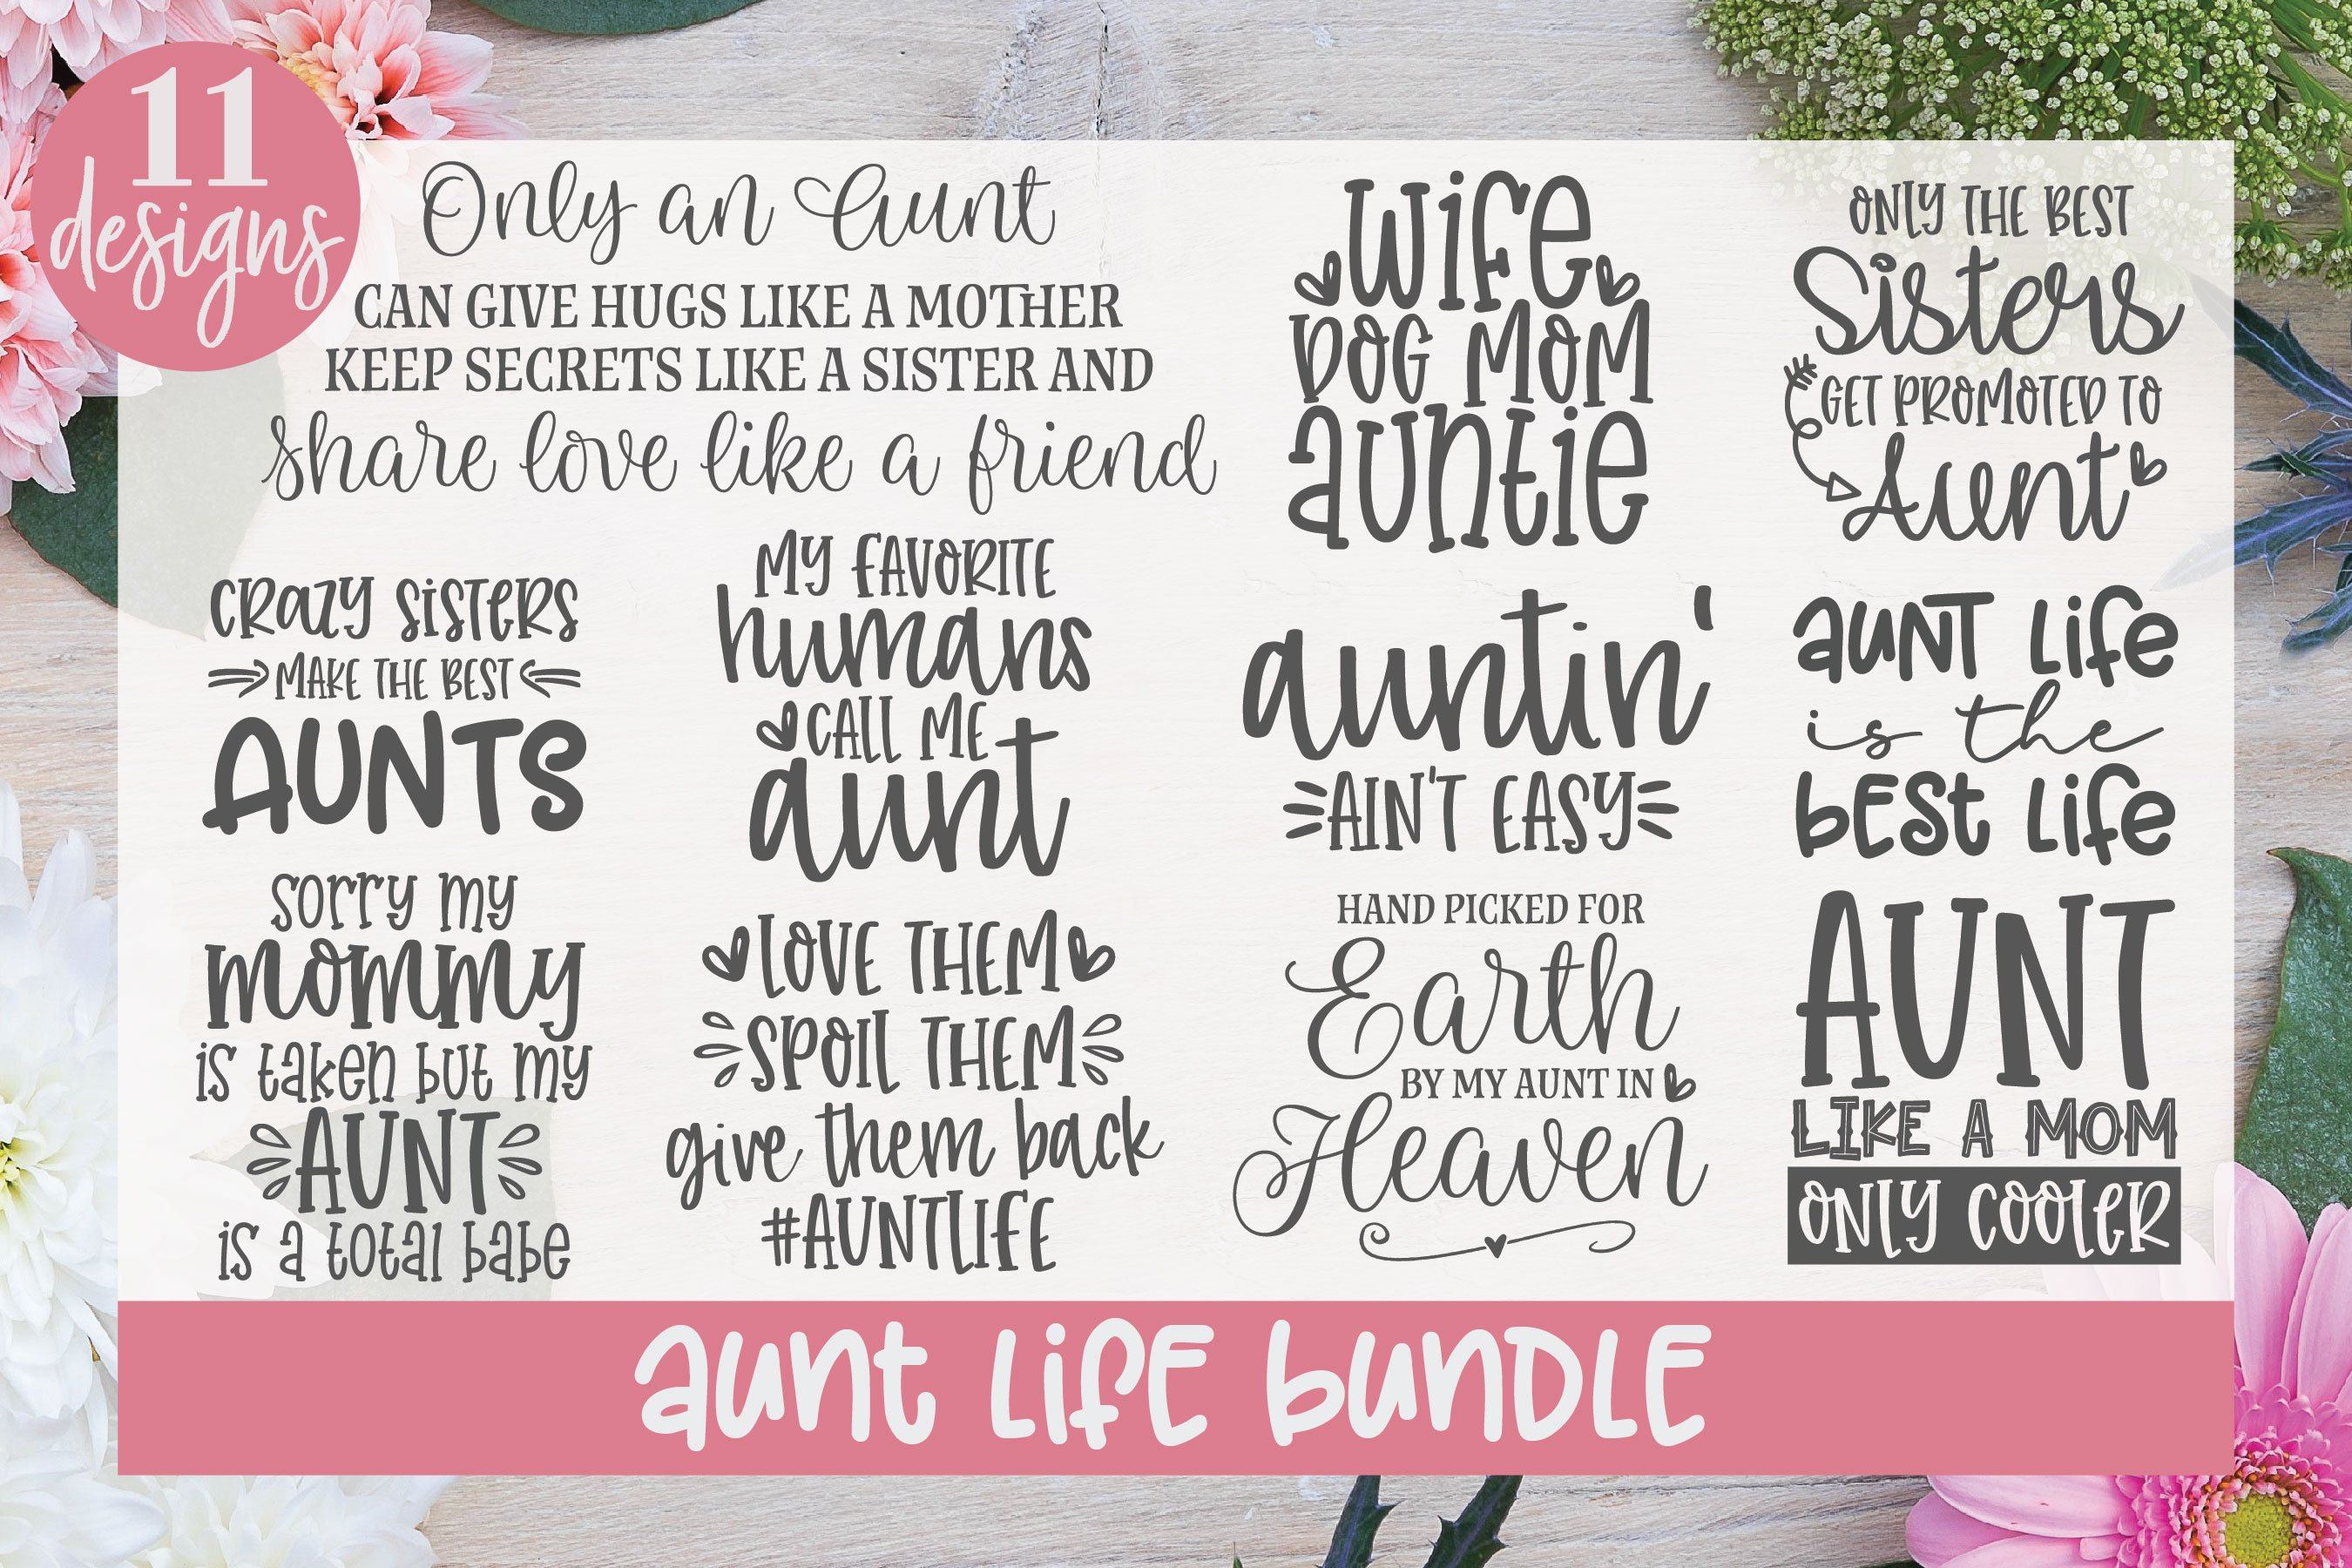 11
designs
Only an Aunt
CAN GIVE HUGS LIKE A MOTHER
KEEP SECRETS LIKE A SISTER AND
share love like a friend
wife
DOG MOM
auntie
ONLY THE BEST
Sisters
GET PROMOTED TO
Aunt
CRAZY SISTERS
MAKE THE BEST
AUNTS
MY FAVORITE
humans
CALL ME
aunt
auntin'
AIN'T EASY
aunt life
is the
best life
sorry my
mommy
is taken but my
AUNT
is a total babe
LOVE THEM
SPOIL THEM
give them back
#AUNTLIFE
HAND PICKED FOR
Earth
BY MY AUNT IN
Heaven
AUNT
LIKE A MOM
ONLY COOLER
aunt life bundle